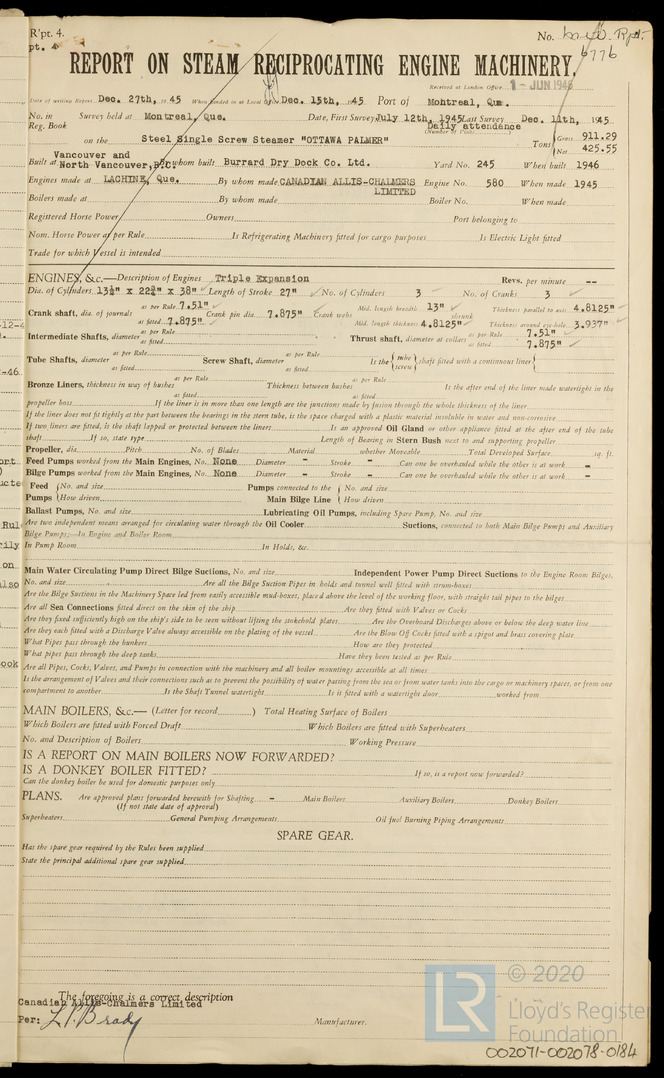 R'pt. 4. No.
pt. 4 6776
REPORT ON STEAM RECIPROCATING ENGINE MACHINERY.
Received at London Office 1 - JUN 1946
Date of writing Report Dec. 27th, 1945 When handed in at Local Office Dec. 15th, 1945 Port of Montreal, Que.
No. in Survey held at Montreal, Que. Date, First Survey July 12th, 1945 Last Survey Dec. 11th, 1945.
Reg. Book Daily attendance
(Number of Visits)
on the Steel Single Screw Steamer "OTTAWA PALMER" Tons Gross 911.29
Net 425.55
Vancouver and
Built at North Vancouver, B.C. By whom built Burrard Dry Dock Co. Ltd. Yard No. 245 When built 1946
Engines made at LACHINE, Que. By whom made CANADIAN ALLIS-CHALMERS LIMITED Engine No. 580 When made 1945
Boilers made at By whom made Boiler No. When made
Registered Horse Power Owners Port belonging to
Nom. Horse Power as per Rule Is Refrigerating Machinery fitted for cargo purposes Is Electric Light fitted
Trade for which Vessel is intended
ENGINES, &c.—Description of Engines Triple Expansion Revs. per minute --
Dia. of Cylinders 13½" x 22¾" x 38" Length of Stroke 27" No. of Cylinders 3 No. of Cranks 3
Crank shaft, dia. of journals as per Rule 7.51" as fitted 7.875" Crank pin dia. 7.875" Crank webs Mid. length breadth 13" Mid. length thickness 4.8125" shrunk Thickness parallel to axis 4.8125" Thickness around eye-hole 3.937"
Intermediate Shafts, diameter as per Rule as fitted Thrust shaft, diameter at collars as per Rule 7.51" as fitted 7.875"
Tube Shafts, diameter as per Rule as fitted Screw Shaft, diameter as per Rule as fitted Is the {tube screw} shaft fitted with a continuous liner
Bronze Liners, thickness in way of bushes as per Rule as fitted Thickness between bushes as per Rule as fitted Is the after end of the liner made watertight in the
propeller boss If the liner is in more than one length are the junctions made by fusion through the whole thickness of the liner
If the liner does not fit tightly at the part between the bearings in the stern tube, is the space charged with a plastic material insoluble in water and non-corrosive
If two liners are fitted, is the shaft lapped or protected between the liners Is an approved Oil Gland or other appliance fitted at the after end of the tube
shaft If so, state type Length of Bearing in Stern Bush next to and supporting propeller
Propeller, dia. Pitch No. of Blades Material whether Moveable Total Developed Surface sq. ft.
Feed Pumps worked from the Main Engines, No. None Diameter - Stroke - Can one be overhauled while the other is at work -
Bilge Pumps worked from the Main Engines, No. None Diameter - Stroke - Can one be overhauled while the other is at work -
Feed Pumps {No. and size How driven Pumps connected to the Main Bilge Line {No. and size How driven
Ballast Pumps, No. and size Lubricating Oil Pumps, including Spare Pump, No. and size
Are two independent means arranged for circulating water through the Oil Cooler Suctions, connected to both Main Bilge Pumps and Auxiliary
Bilge Pumps;—In Engine and Boiler Room
In Pump Room In Holds, &c.
Main Water Circulating Pump Direct Bilge Suctions, No. and size Independent Power Pump Direct Suctions to the Engine Room Bilges,
No. and size Are all the Bilge Suction Pipes in holds and tunnel well fitted with strum-boxes
Are the Bilge Suctions in the Machinery Space led from easily accessible mud-boxes, placed above the level of the working floor, with straight tail pipes to the bilges
Are all Sea Connections fitted direct on the skin of the ship Are they fitted with Valves or Cocks
Are they fixed sufficiently high on the ship's side to be seen without lifting the stokehold plates Are the Overboard Discharges above or below the deep water line
Are they each fitted with a Discharge Valve always accessible on the plating of the vessel Are the Blow Off Cocks fitted with a spigot and brass covering plate
What Pipes pass through the bunkers How are they protected
What pipes pass through the deep tanks Have they been tested as per Rule
Are all Pipes, Cocks, Valves, and Pumps in connection with the machinery and all boiler mountings accessible at all times
Is the arrangement of Valves and their connections such as to prevent the possibility of water passing from the sea or from water tanks into the cargo or machinery spaces, or from one
compartment to another Is the Shaft Tunnel watertight Is it fitted with a watertight door worked from
MAIN BOILERS, &c.— (Letter for record ) Total Heating Surface of Boilers
Which Boilers are fitted with Forced Draft Which Boilers are fitted with Superheaters
No. and Description of Boilers Working Pressure
IS A REPORT ON MAIN BOILERS NOW FORWARDED?
IS A DONKEY BOILER FITTED? If so, is a report now forwarded?
Can the donkey boiler be used for domestic purposes only
PLANS. Are approved plans forwarded herewith for Shafting - Main Boilers Auxiliary Boilers Donkey Boilers
(If not state date of approval)
Superheaters General Pumping Arrangements Oil fuel Burning Piping Arrangements
SPARE GEAR.
Has the spare gear required by the Rules been supplied
State the principal additional spare gear supplied
The foregoing is a correct description
Canadian Allis-Chalmers Limited
Per: L.P. Brady Manufacturer.
LR © 2020
Lloyd's Register
Foundation
002071-002078-0184